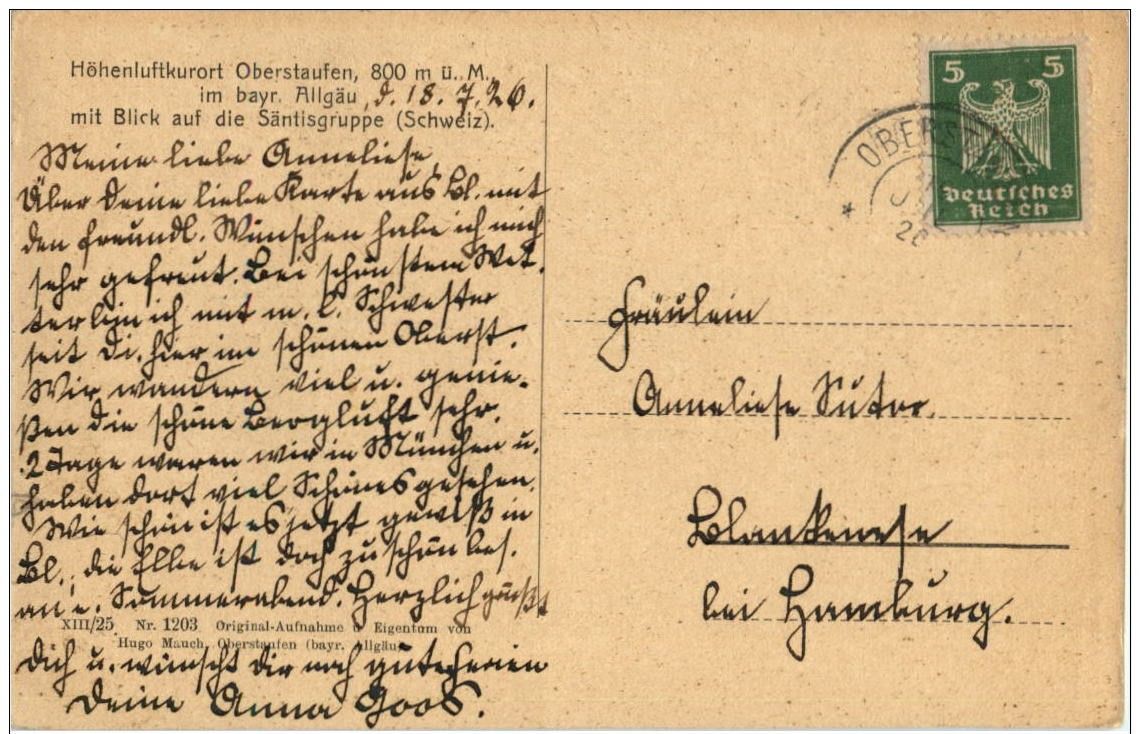 Höhenluftkurort Oberstaufen, 800 m ü. M.
im bayr. Allgäu, d. 18. 7. 26.
mit Blick auf die Säntisgruppe (Schweiz).
Meine liebe Anneliese,
Über Deine liebe Karte aus Bl. mit
den freundl. Wünschen habe ich mich
sehr gefreut. Bei schönstem Wet-
ter bin ich mit m. l. Schwester
seit Di. hier im schönen Oberst.
Wir wandern viel u. genie-
ßen die schöne Bergluft sehr.
2 Tage waren wir in München u.
haben dort viel Schönes gesehen.
Wie schön ist es jetzt gewiß in
Bl., die Elbe ist doch zu schön bes.
an e. Sommerabend. Herzlich grüßt
XIII/25 Nr. 1203 Original-Aufnahme u. Eigentum von
Hugo Mauch, Oberstaufen (bayr. Allgäu
Dich u. wünscht dir noch gute Ferien
Deine Anna Goos.
5 5
Deutsches
Reich
OBERST
26
Fräulein
Anneliese Sutor
Blankenese
bei Hamburg.